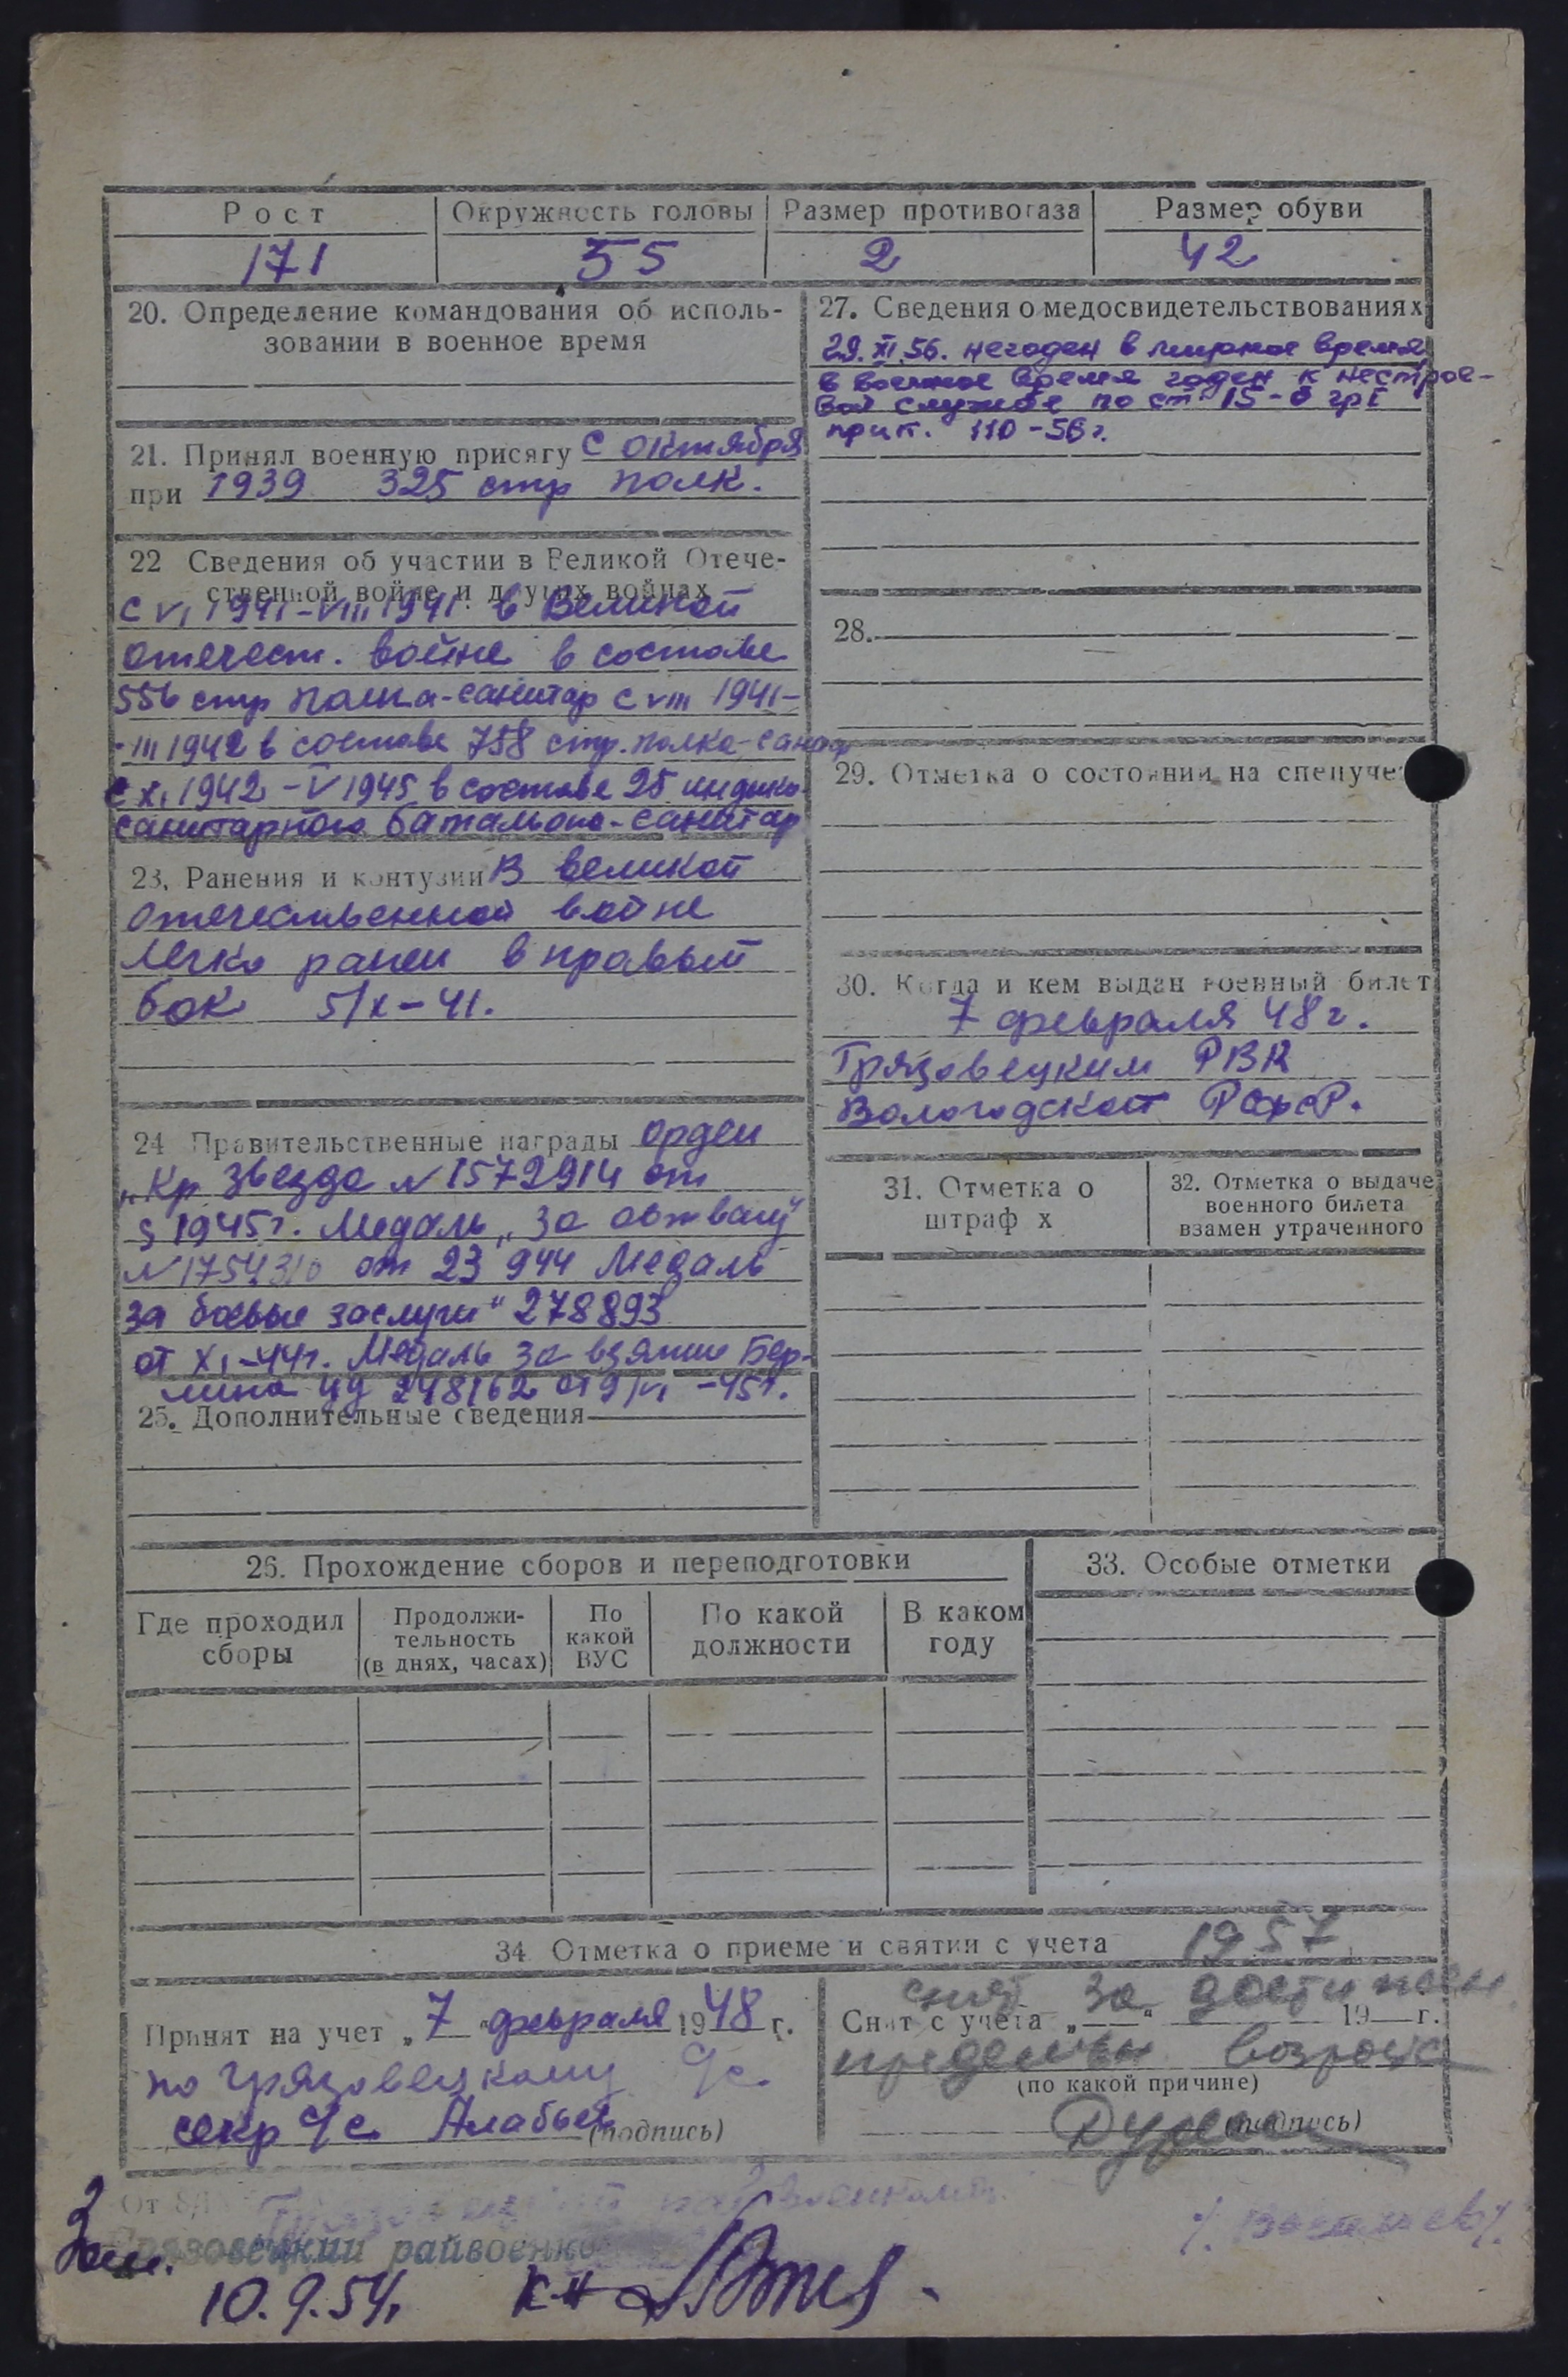 Рост
Окружность головы
Размер противогаза
Размер обуви
171
55
2
42
20. Определение командования об исполь-
зовании в военное время
21. Принял военную присягу с октября
при 1939 325 стр полк.
22 Сведения об участии в Великой Отече-
ственной войне и других войнах
с VI 1941-VIII 1941 в Великой
отечест. войне в составе
556 стр полка-санитар с VIII 1941-
-III 1942 в составе 758 стр. полка-санит
с XI 1942-V 1945 в составе 25
санитарного батальона-санитар
23. Ранения и контузии В великой
отечественной войне
легко ранен в правый
бок 5/X-41.
24 Правительственные награды орден
"Кр звезда N 1572914 от
5 1945 г. Медаль "За отвагу"
N 1754310 от 23 944 Медаль
за боевые заслуги" 278893
от XI-44г. Медаль за взятие Бер-
лина 248162 от 9/VI -45г.
25. Дополнительные сведения
27. Сведения о медосвидетельствованиях
29.XI.56. негоден в мирное время
в военное время годен к нестрое-
вой службе по ст 15-б гр I
прик. 110-56г.
28.
29. Отметка о состоянии на спецучете
30. Когда и кем выдан военный билет
7 февраля 48 г.
Грязовецким РВК
Вологодской РСФСР.
31. Отметка о
штраф х
32. Отметка о выдаче
военного билета
взамен утраченного
26. Прохождение сборов и переподготовки
33. Особые отметки
Где проходил
сборы
Продолжи-
тельность
(в днях, часах)
По
какой
ВУС
По какой
должности
В каком
году
34 Отметка о приеме и снятии с учета 1957
Принят на учет „7" февраля 1948 г.
по Грязовецкому с/с.
секр с/с Алабьев
(подпись)
снят за достижен
Снят с учета „—" 19—г.
предельн возраста
(по какой причине)
(подпись)
От
райвоенкомат
Зам.
Грязовецкий райвоенко
к-н
10.9.54.